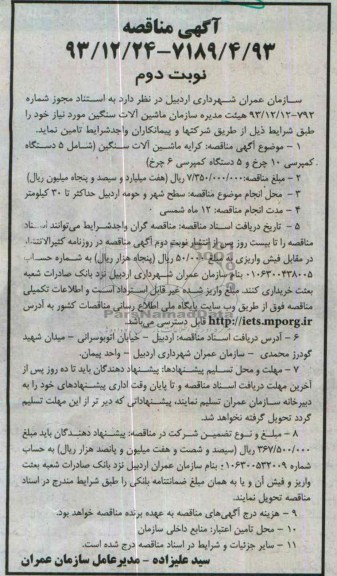 آگهی مناقصه
۹۳/۱۲/۲۴-۷۱۸۹/۴/۹۳
نوبت دوم
سازمان عمران شهرداری اردبیل در نظر دارد به استناد مجوز شماره
۷۹۲-۹۳/۱۲/۱۲ هیئت مدیره سازمان ماشین آلات سنگین مورد نیاز خود را
طبق شرایط ذیل از طریق شرکتها و پیمانکاران واجدشرایط تامین نماید.
۱ – موضوع آگهی مناقصه: کرایه ماشین آلات سنگین (شامل ۵ دستگاه
کمپرسی ۱۰ چرخ و ۵ دستگاه کمپرسی ۶ چرخ)
۲ – مبلغ مناقصه: ۷/۳۵۰/۰۰۰/۰۰۰ ریال (هفت میلیارد و سیصد و پنجاه میلیون ریال)
۳ – محل انجام موضوع مناقصه: سطح شهر و حومه اردبیل حداکثر تا ۳۰ کیلومتر
۴ – مدت انجام مناقصه: ۱۲ ماه شمسی
۵ – تاریخ دریافت اسناد مناقصه: مناقصه گران واجدشرایط می‌توانند اسناد
مناقصه را تا بیست روز پس از انتشار نوبت دوم آگهی مناقصه در روزنامه کثیرالانتشار
در مقابل فیش واریزی به مبلغ ۵۰/۰۰۰ ریال (پنجاه هزار ریال) به شماره حساب
۰۱۰۶۳۰۰۴۳۸۰۰۵ بنام سازمان عمران شهرداری اردبیل نزد بانک صادرات شعبه
بعثت خریداری کنند. مبلغ واریز شده غیر قابل استرداد است و اطلاعات تکمیلی
مناقصه فوق از طریق وب سایت پایگاه ملی اطلاع رسانی مناقصات کشور به آدرس
http://iets.mporg.ir قابل دسترسی می‌باشد.
۶ – آدرس دریافت اسناد مناقصه: اردبیل – خیابان اتوبوسرانی – میدان شهید
گودرز محمدی – سازمان عمران شهرداری اردبیل – واحد پیمان.
۷ – مهلت و محل تسلیم پیشنهادها: پیشنهاد دهندگان باید تا ده روز پس از
آخرین مهلت دریافت اسناد مناقصه و تا پایان وقت اداری پیشنهادهای خود را به
دبیرخانه سازمان عمران تسلیم نمایند، پیشنهاداتی که دیر تر از این مهلت تسلیم
گردد تحویل گرفته نخواهد شد.
۸ – مبلغ و نوع تضمین شرکت در مناقصه: پیشنهاد دهندگان باید مبلغ
۳۶۷/۵۰۰/۰۰۰ ریال (سیصد و شصت و هفت میلیون و پانصد هزار ریال) به حساب
شماره ۰۱۰۶۳۰۰۵۳۲۰۰۹ بنام سازمان عمران اردبیل نزد بانک صادرات شعبه بعثت
واریز و فیش آن و یا به همان مبلغ ضمانتنامه بانکی را طبق شرایط مندرج در اسناد
مناقصه تحویل نمایند.
۹ – هزینه درج آگهی‌های مناقصه به عهده برنده مناقصه خواهد بود.
۱۰ – محل تامین اعتبار: منابع داخلی سازمان
۱۱ – سایر جزئیات و شرایط در اسناد مناقصه درج شده است.
سید علیزاده – مدیرعامل سازمان عمران